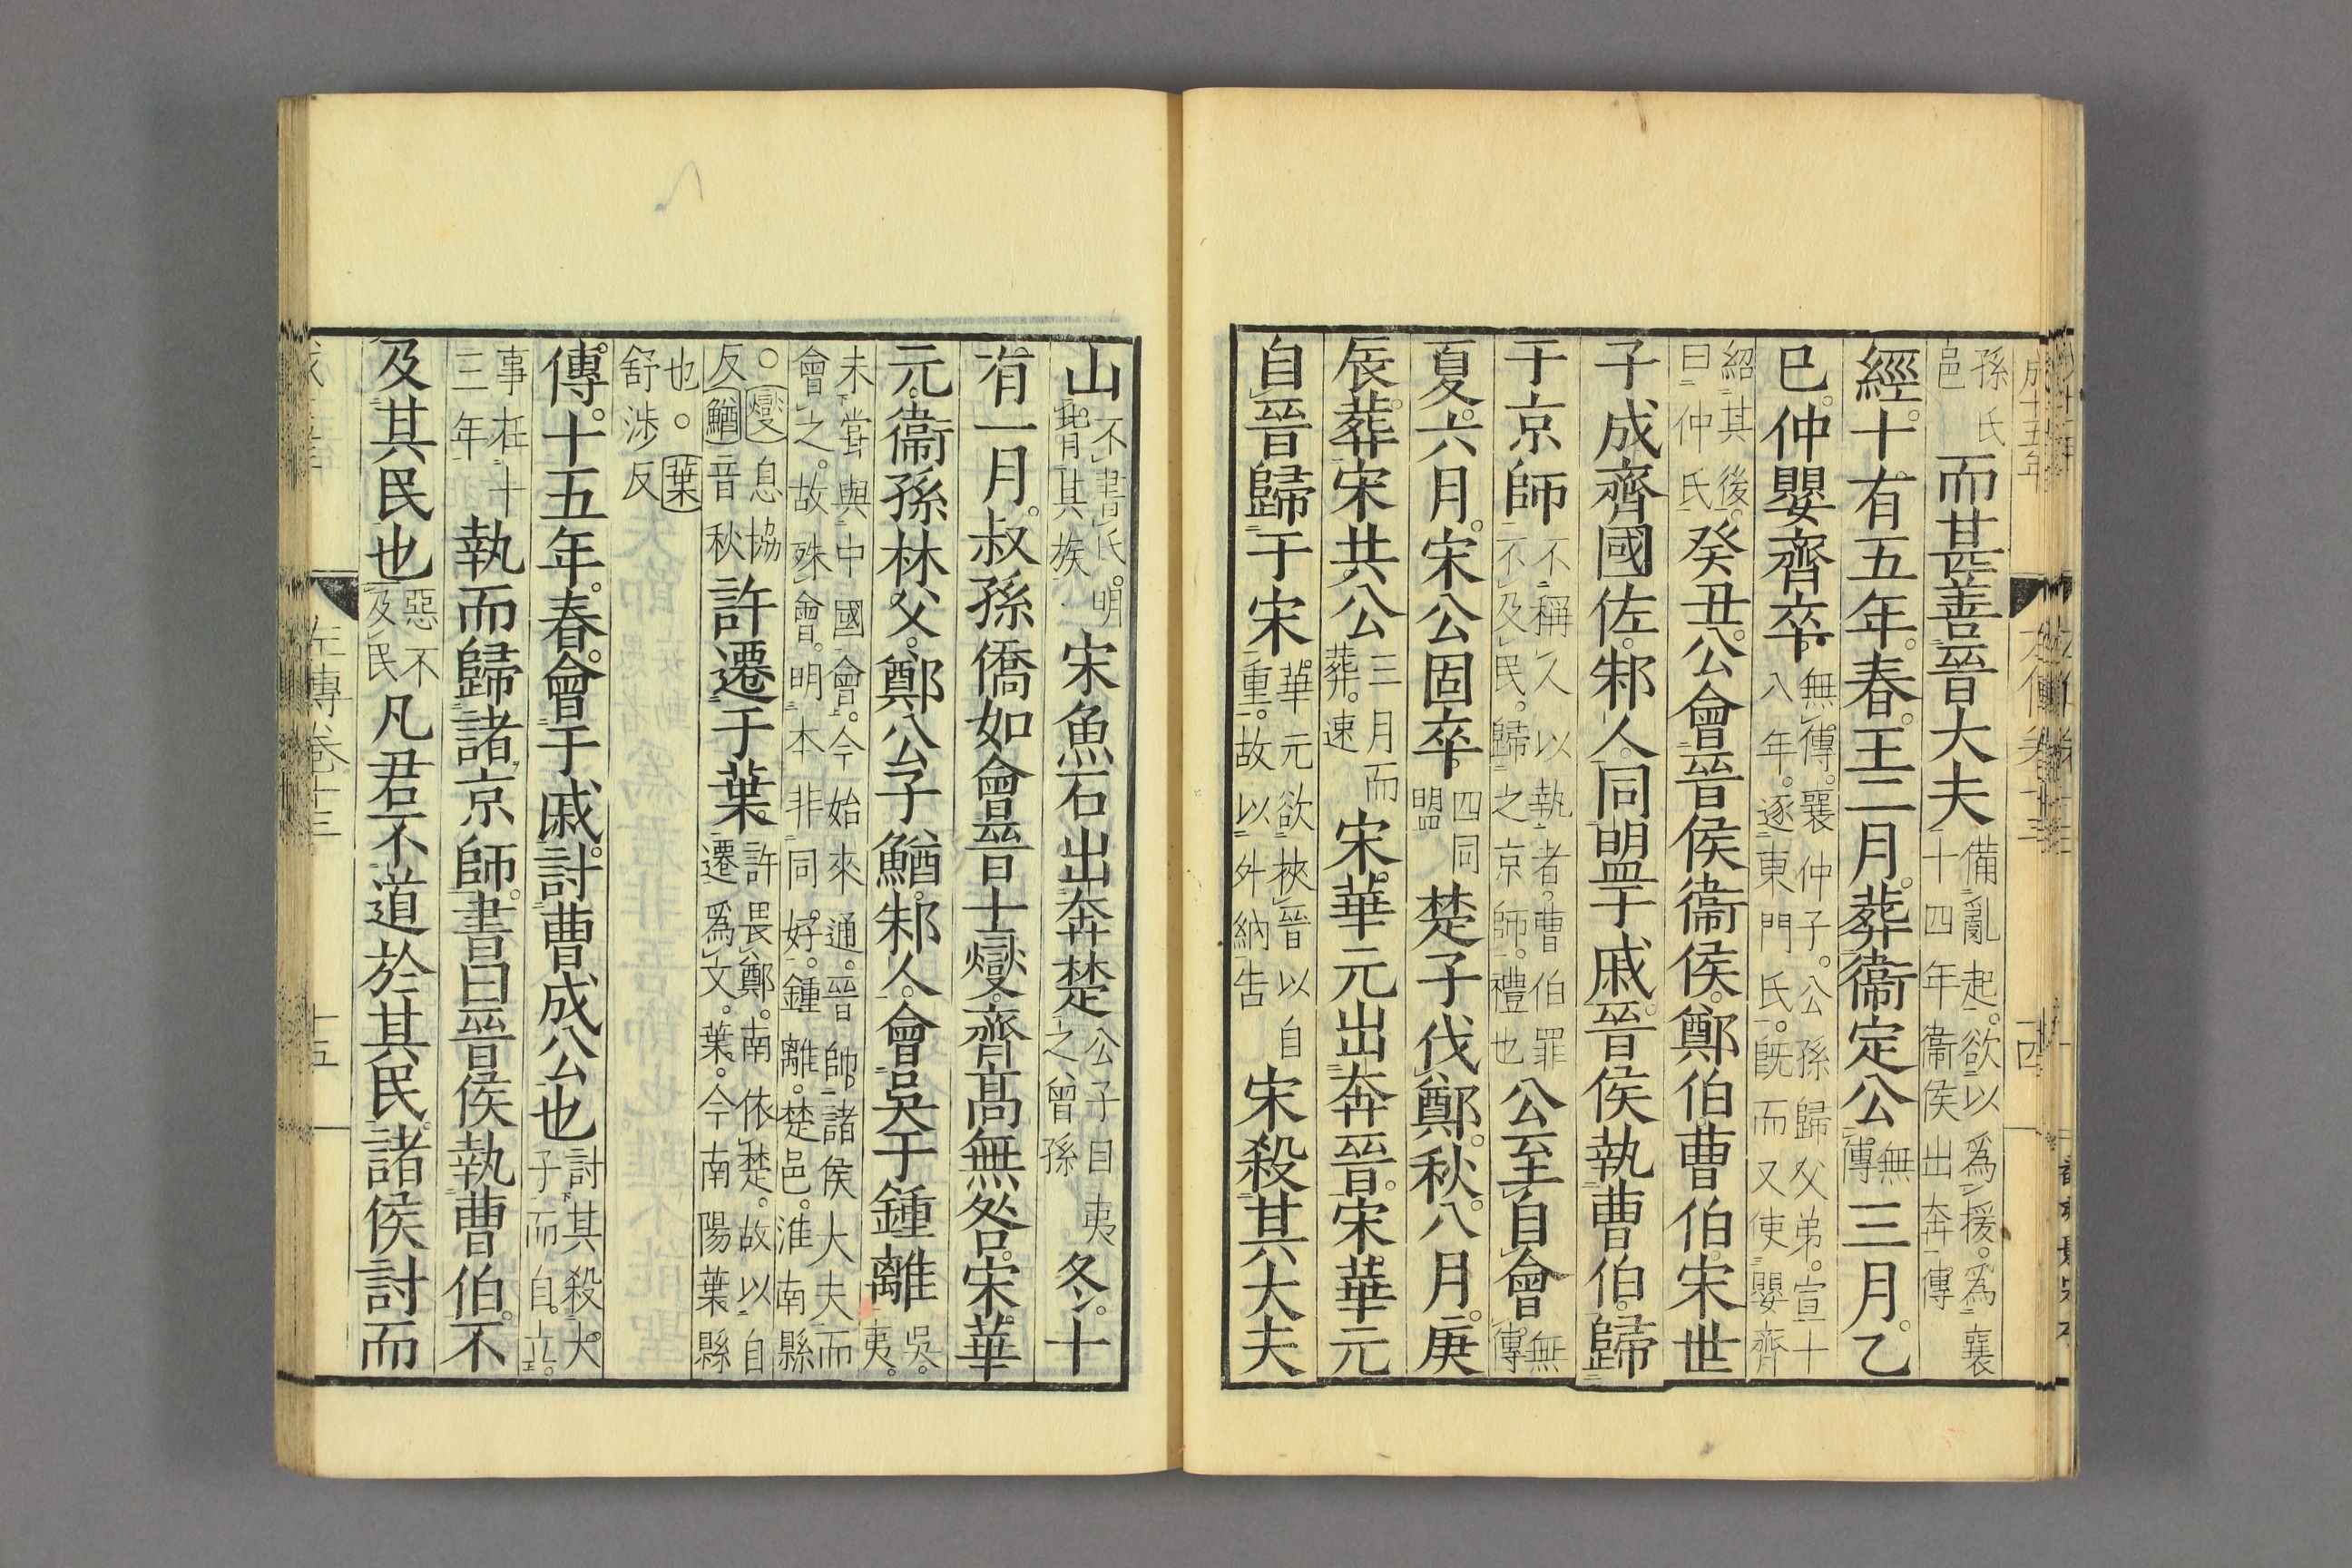 成十五年
孫氏邑而甚善晉大夫備亂起欲以爲援爲襄十四年衞侯出奔傳
經十有五年春王二月葬衞定公無傳三月乙
巳仲嬰齊卒無傳襄仲子公孫歸父弟宣十八年逐東門氏旣而又使嬰齊
紹其後曰仲氏癸丑公會晉侯衞侯鄭伯曹伯宋世
子成齊國佐邾人同盟于戚晉侯執曹伯歸
于京師不稱人以執者曹伯罪不及民歸之京師禮也公至自會無傳
夏六月宋公固卒四同盟楚子伐鄭秋八月庚
辰葬宋共公三月而葬速宋華元出奔晉宋華元
自晉歸于宋華元欲挾晉以自重故以外納告宋殺其大夫
山不書氏明背其族宋魚石出奔楚公子目夷之曾孫冬十
有一月叔孫僑如會晉士燮齊高無咎宋華
元衞孫林父鄭公子鰌邾人會吳于鍾離吳夷
未嘗與中國會今始來通晉帥諸侯大夫而會之故殊會明本非同好鍾離楚邑淮南縣
○燮息協反鰌音秋許遷于葉許畏鄭南依楚故以自遷爲文葉今南陽葉縣
也○葉舒涉反
傳十五年春會于戚討曹成公也討其殺大子而自立
事在十三年執而歸諸京師書曰晉侯執曹伯不
及其民也惡不及民凡君不道於其民諸侯討而
左傳卷十三
十五